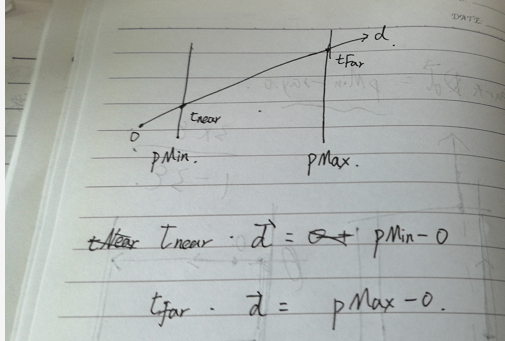 DATE
d.
tFar
tnear
O
pMin.
pMax.
tNear tnear · d⃗ = O+ pMin-O
tfar · d⃗ = pMax-O.